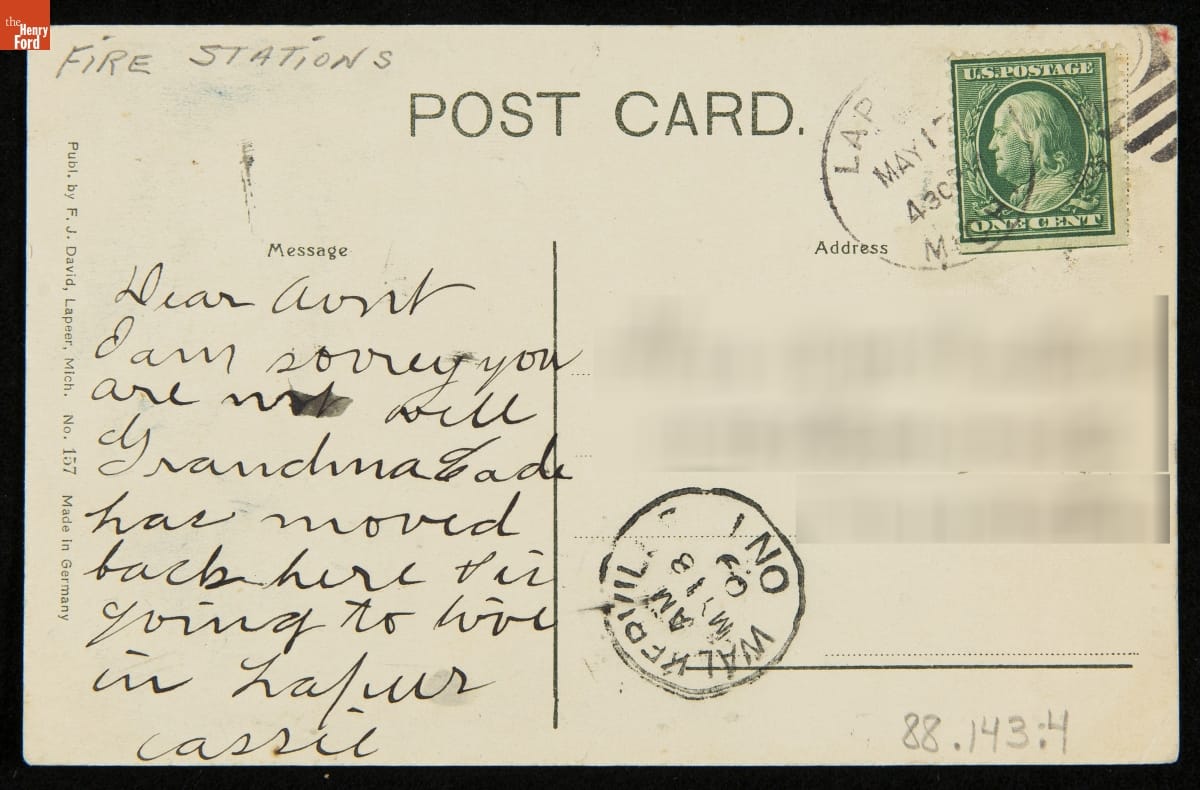 the
Henry
Ford
FIRE STATIONS
POST CARD.
U.S. POSTAGE
ONE CENT
LAP
MAY 17
430P
MICH
Message
Address
Dear Aunt
I am sorrey you
are not well
Grandma Cade
has moved
back here & is
going to live
in Lapeer
Cassie
Publ. by F. J. David, Lapeer, Mich. No. 157 Made in Germany
WALKERVILLE ONT
AM
MY 18
09
88.143:4